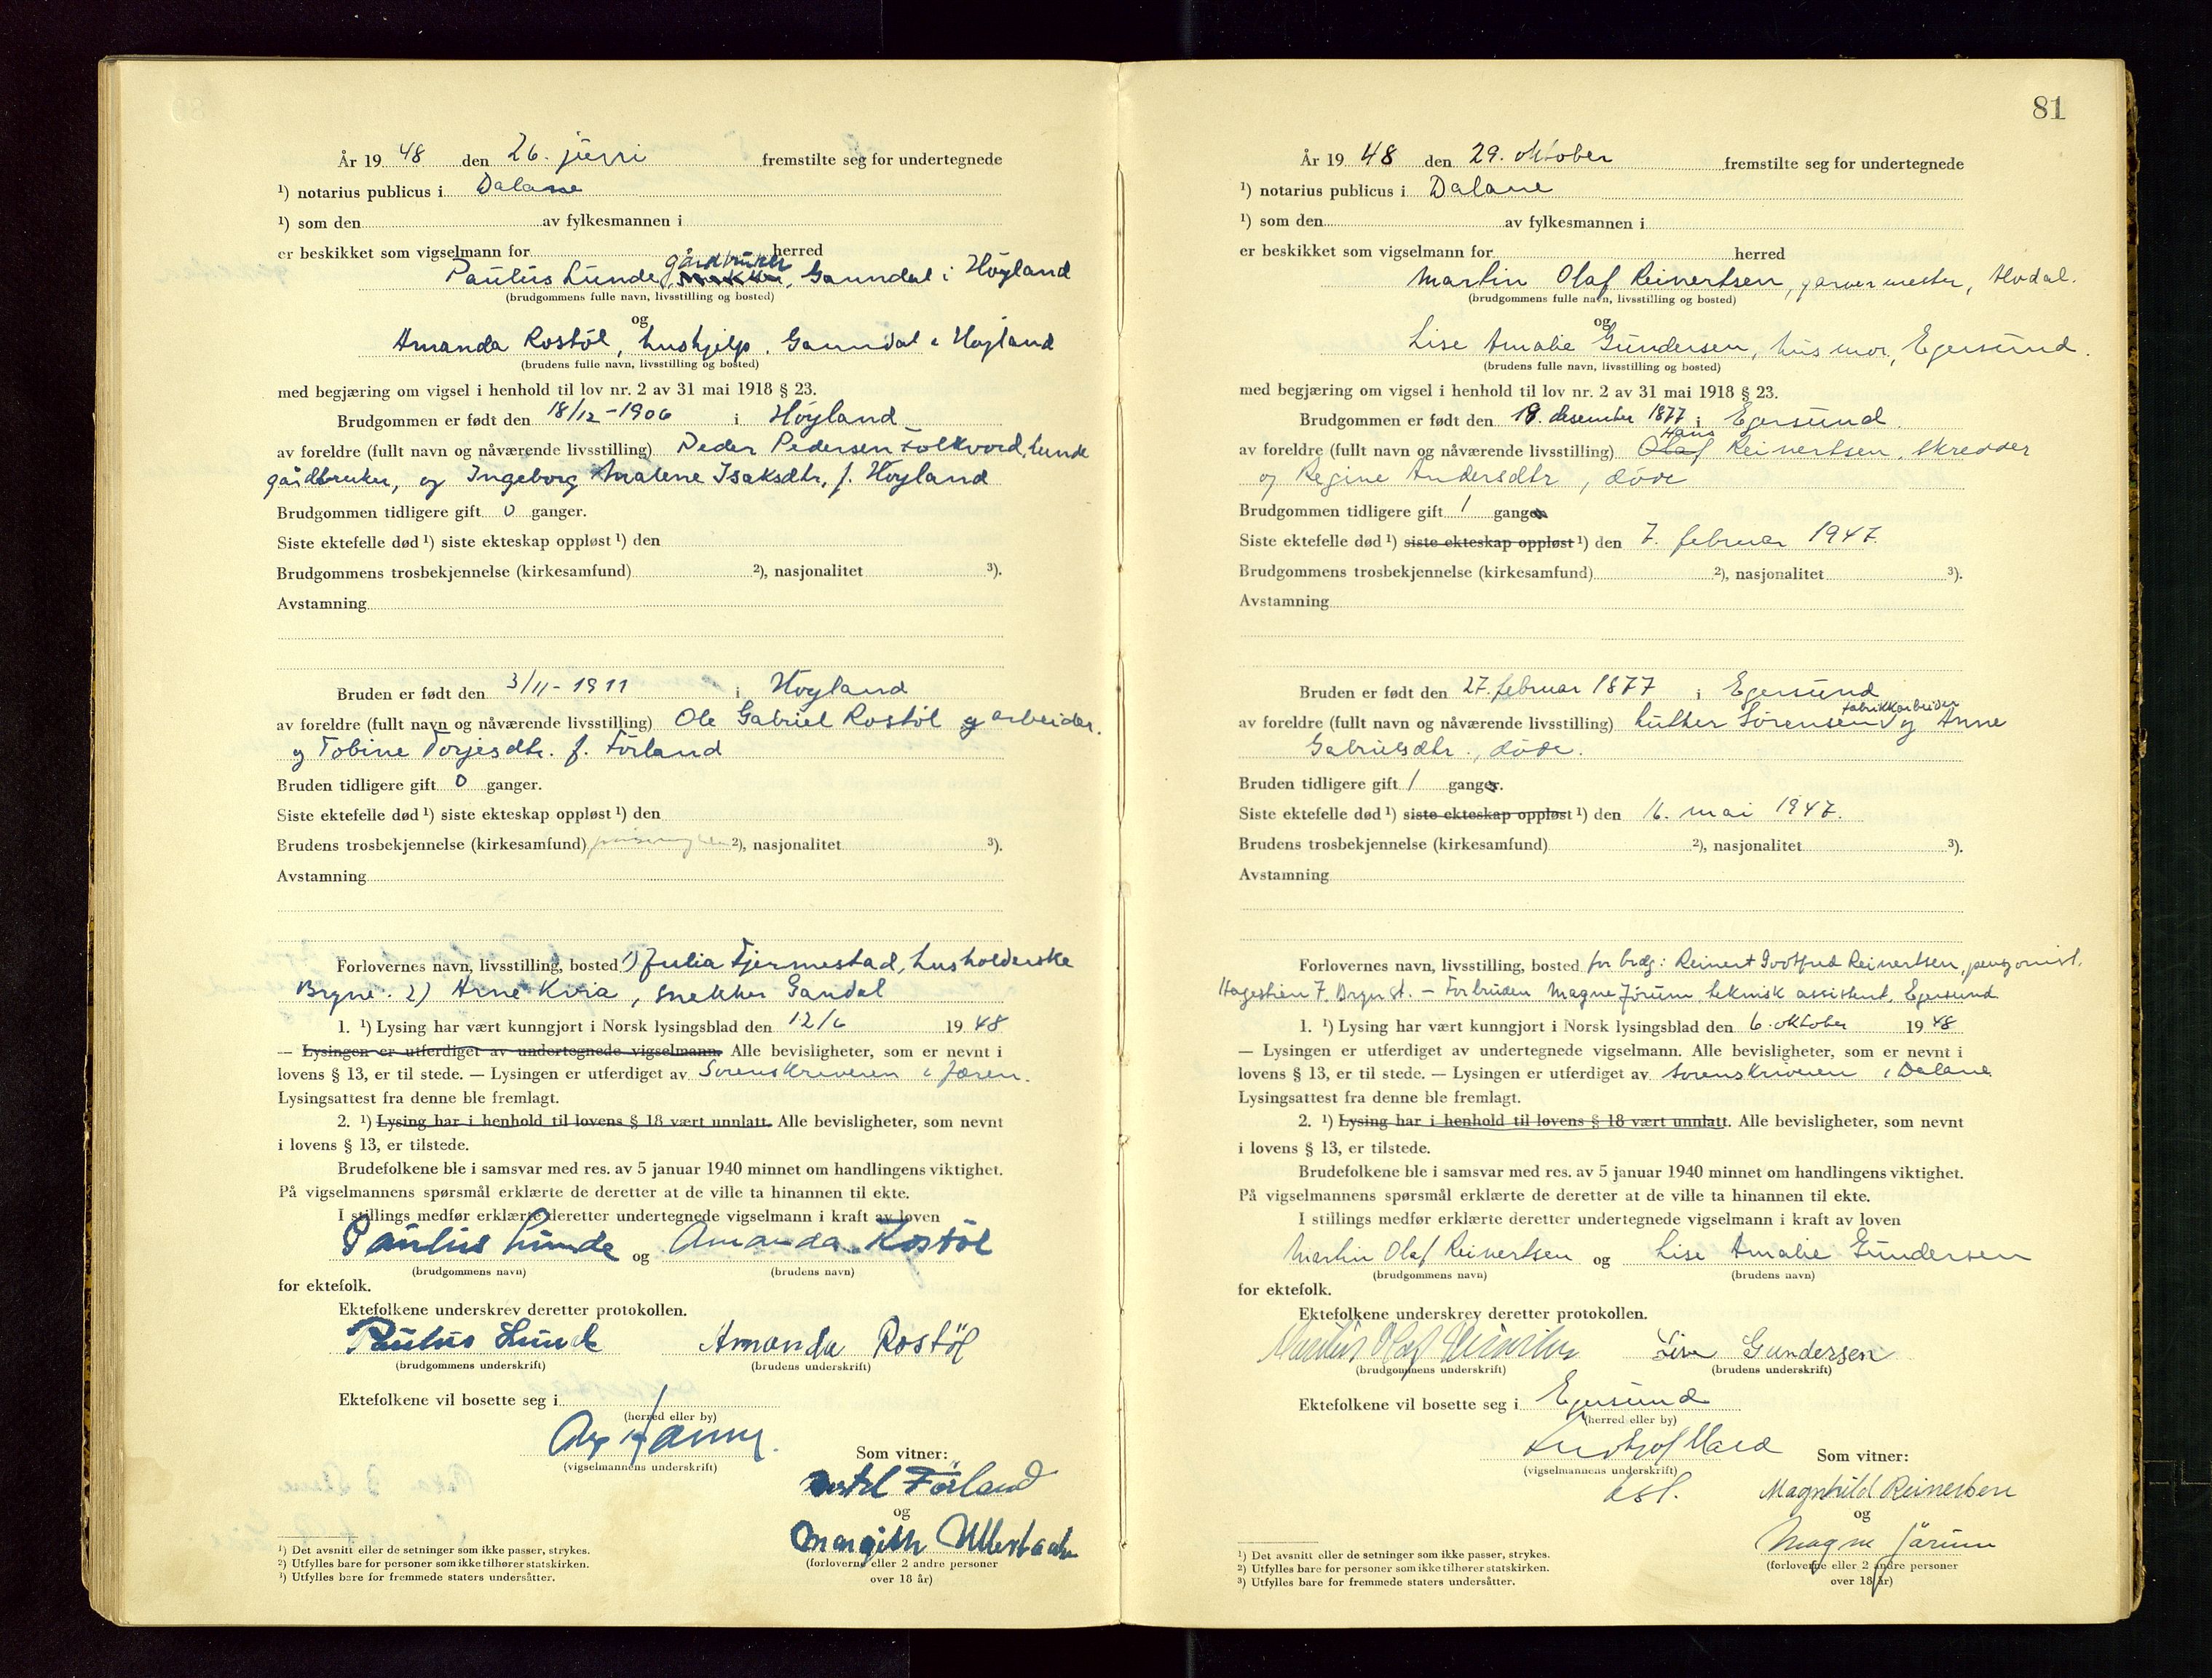 År 19 48 den 26. juni fremstilte seg for undertegnede
¹) notarius publicus i Dalane
¹) som den av fylkesmannen i
er beskikket som vigselmann for herred
gårdbruker
Paulus Lunde, Ganndal i Høyland
(brudgommens fulle navn, livsstilling og bosted)
og
Amanda Rostøl, hushjelp, Ganndal i Høyland
(brudens fulle navn, livsstilling og bosted)
med begjæring om vigsel i henhold til lov nr. 2 av 31 mai 1918 § 23.
Brudgommen er født den 18/12-1906 i Høyland
av foreldre (fullt navn og nåværende livsstilling) Peder Pedersen Folkvord, Lunde
gårdbruker, og Ingeborg Malene Isaksdtr, f. Høyland
Brudgommen tidligere gift 0 ganger.
Siste ektefelle død ¹) siste ekteskap oppløst ¹) den
Brudgommens trosbekjennelse (kirkesamfund) ²), nasjonalitet ³).
Avstamning
Bruden er født den 3/11-1911 i Høyland
av foreldre (fullt navn og nåværende livsstilling) Ole Gabriel Rostøl arbeider.
og Tobine Torjesdtr. f. Førland
Bruden tidligere gift 0 ganger.
Siste ektefelle død ¹) siste ekteskap oppløst ¹) den
Brudens trosbekjennelse (kirkesamfund) ²), nasjonalitet ³).
Avstamning
Forlovernes navn, livsstilling, bosted 1) Julia Fjermestad, husholderske
Bryne. 2) Arne Kvia, snekker Gandal
1. ¹) Lysing har vært kunngjort i Norsk lysingsblad den 12/6 19 48
— Lysingen er utferdiget av undertegnede vigselmann. Alle bevisligheter, som er nevnt i
lovens § 13, er til stede. — Lysingen er utferdiget av Sorenskriveren i Jæren.
Lysingsattest fra denne ble fremlagt.
2. ¹) Lysing har i henhold til lovens § 18 vært unnlatt. Alle bevisligheter, som nevnt
i lovens § 13, er tilstede.
Brudefolkene ble i samsvar med res. av 5 januar 1940 minnet om handlingens viktighet.
På vigselmannens spørsmål erklærte de deretter at de ville ta hinannen til ekte.
I stillings medfør erklærte deretter undertegnede vigselmann i kraft av loven
Paulus Lunde og Amanda Rostøl
(brudgommens navn) (brudens navn)
for ektefolk.
Ektefolkene underskrev deretter protokollen.
Paulus Lunde Amanda Rostøl
(brudgommens underskrift) (brudens underskrift)
Ektefolkene vil bosette seg i
(herred eller by)
(vigselmannens underskrift)
Som vitner:
Førland
og
Margith
(forloverne eller 2 andre personer
over 18 år)
¹) Det avsnitt eller de setninger som ikke passer, strykes.
²) Utfylles bare for personer som ikke tilhører statskirken.
³) Utfylles bare for fremmede staters undersåtter.
81
År 19 48 den 29. oktober fremstilte seg for undertegnede
¹) notarius publicus i Dalane
¹) som den av fylkesmannen i
er beskikket som vigselmann for herred
Martin Olaf Reinertsen, garvermester,
(brudgommens fulle navn, livsstilling og bosted)
og
Lise Amalie Gundersen, husmor, Egersund.
(brudens fulle navn, livsstilling og bosted)
med begjæring om vigsel i henhold til lov nr. 2 av 31 mai 1918 § 23.
Brudgommen er født den 18. desember 1877 i Egersund
Hans
av foreldre (fullt navn og nåværende livsstilling) Olaf Reinertsen, skredder
og Regine Andersdtr, døde
Brudgommen tidligere gift 1 ganger
Siste ektefelle død ¹) siste ekteskap oppløst ¹) den 7. februar 1947.
Brudgommens trosbekjennelse (kirkesamfund) ²), nasjonalitet ³).
Avstamning
Bruden er født den 27. februar 1877 i Egersund
fabrikkarbeider
av foreldre (fullt navn og nåværende livsstilling) Luther Sørensen og Anne
Gabrielsdtr., døde.
Bruden tidligere gift 1 ganger.
Siste ektefelle død ¹) siste ekteskap oppløst ¹) den 16. mai 1947.
Brudens trosbekjennelse (kirkesamfund) ²), nasjonalitet ³).
Avstamning
Forlovernes navn, livsstilling, bosted for brdg: Reinert Gotfred Reinertsen, pensjonist,
7. – For bruden Magne Jørum, teknisk assistent, Egersund
1. ¹) Lysing har vært kunngjort i Norsk lysingsblad den 6. oktober 19 48
— Lysingen er utferdiget av undertegnede vigselmann. Alle bevisligheter, som er nevnt i
lovens § 13, er til stede. — Lysingen er utferdiget av Sorenskriveren i Dalane
Lysingsattest fra denne ble fremlagt.
2. ¹) Lysing har i henhold til lovens § 18 vært unnlatt. Alle bevisligheter, som nevnt
i lovens § 13, er tilstede.
Brudefolkene ble i samsvar med res. av 5 januar 1940 minnet om handlingens viktighet.
På vigselmannens spørsmål erklærte de deretter at de ville ta hinannen til ekte.
I stillings medfør erklærte deretter undertegnede vigselmann i kraft av loven
Martin Olaf Reinertsen og Lise Amalie Gundersen
(brudgommens navn) (brudens navn)
for ektefolk.
Ektefolkene underskrev deretter protokollen.
Martin Olaf Reinertsen Lise Gundersen
(brudgommens underskrift) (brudens underskrift)
Ektefolkene vil bosette seg i Egersund
(herred eller by)
(vigselmannens underskrift)
Som vitner:
Magnhild Reinertsen
og
Magne Jørum
(forloverne eller 2 andre personer
over 18 år)
¹) Det avsnitt eller de setninger som ikke passer, strykes.
²) Utfylles bare for personer som ikke tilhører statskirken.
³) Utfylles bare for fremmede staters undersåtter.